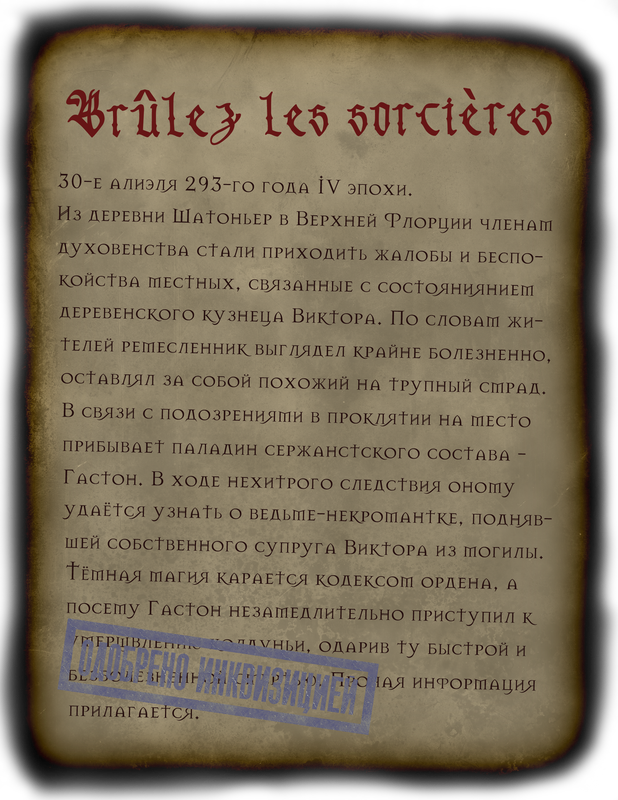 Brûlez les sorcières
30-е алиэля 293-го года IV эпохи.
Из деревни Шатоньер в Верхней Флорции членам
духовенства стали приходить жалобы и беспо-
койства местных, связанные с состояниянием
деревенского кузнеца Виктора. По словам жи-
телей ремесленник выглядел крайне болезненно,
оставлял за собой похожий на трупный смрад.
В связи с подозрениями в проклятии на место
прибывает паладин сержанстского состава -
Гастон. В ходе нехитрого следствия оному
удаётся узнать о ведьме-некромантке, подняв-
шей собственного супруга Виктора из могилы.
Тёмная магия карается кодексом ордена, а
посему Гастон незамедлительно приступил к
умерщвлению колдуньи, одарив ту быстрой и
безболезненной смертью. Прочая информация
прилагается.
ОДОБРЕНО ИНКВИЗИЦИЕЙ